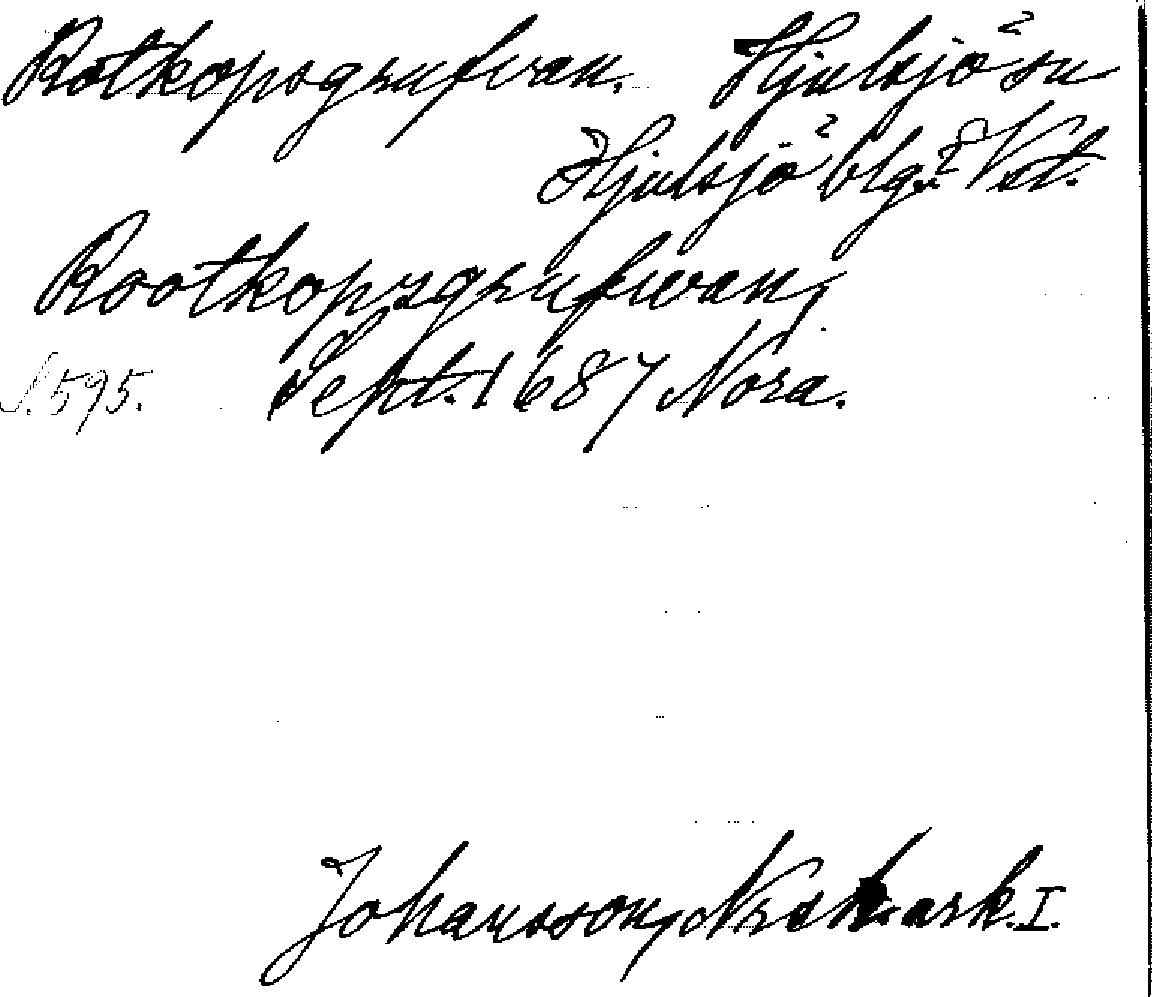 Rotkopsgrufvan. Hjulsjö sn
Hjulsjö blg. Vst.
Rootkopsgrufwan,
S. 595. Sept. 1687 Nora.
Johansson, Nrsk. ark. I.